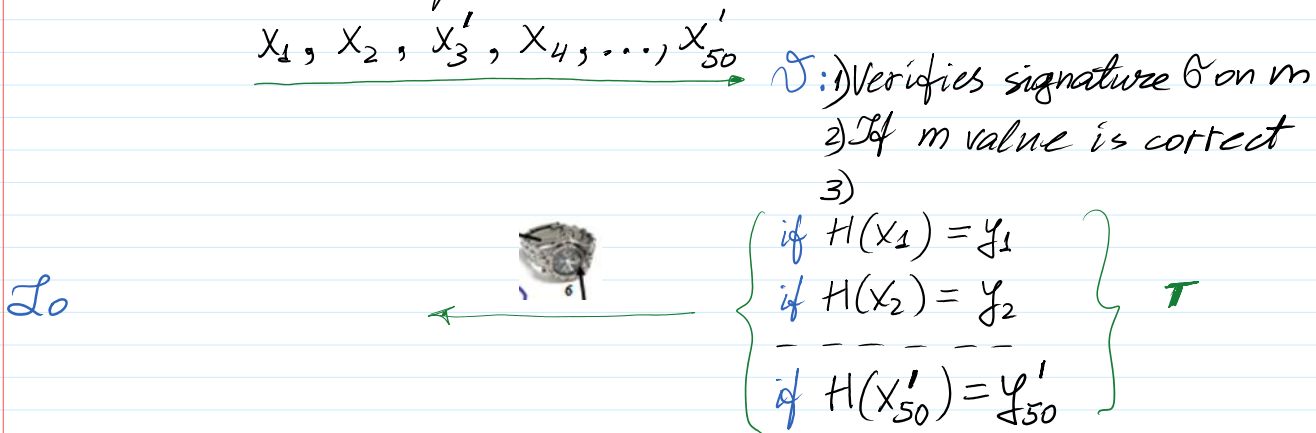 x₁, x₂, x₃', x₄, ..., x₅₀'
𝒱: 1) Verifies signature σ on m
2) If m value is correct
3)
if H(x₁) = y₁
6
Lo
if H(x₂) = y₂
T
— — — — — —
if H(x₅₀') = y₅₀'